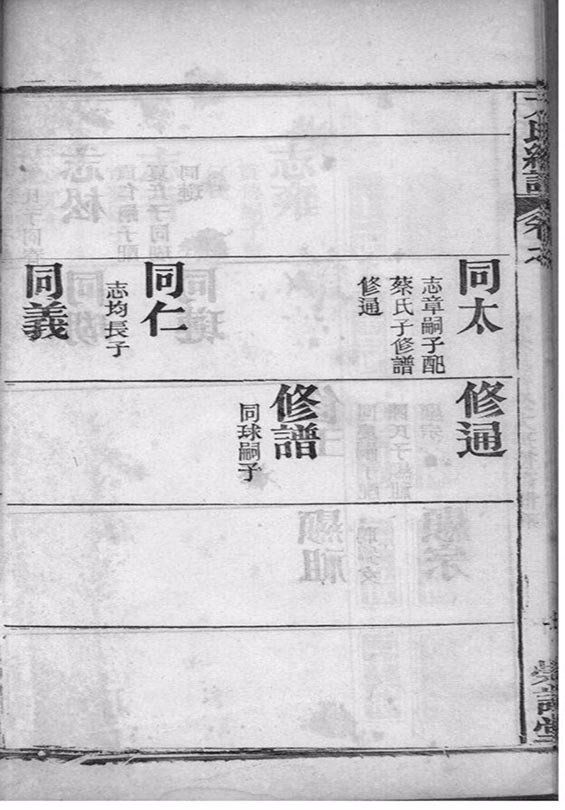 同太
志章嗣子配
蔡氏子修譜
修通
同仁
志均長子
同義
修通
修譜
同球嗣子